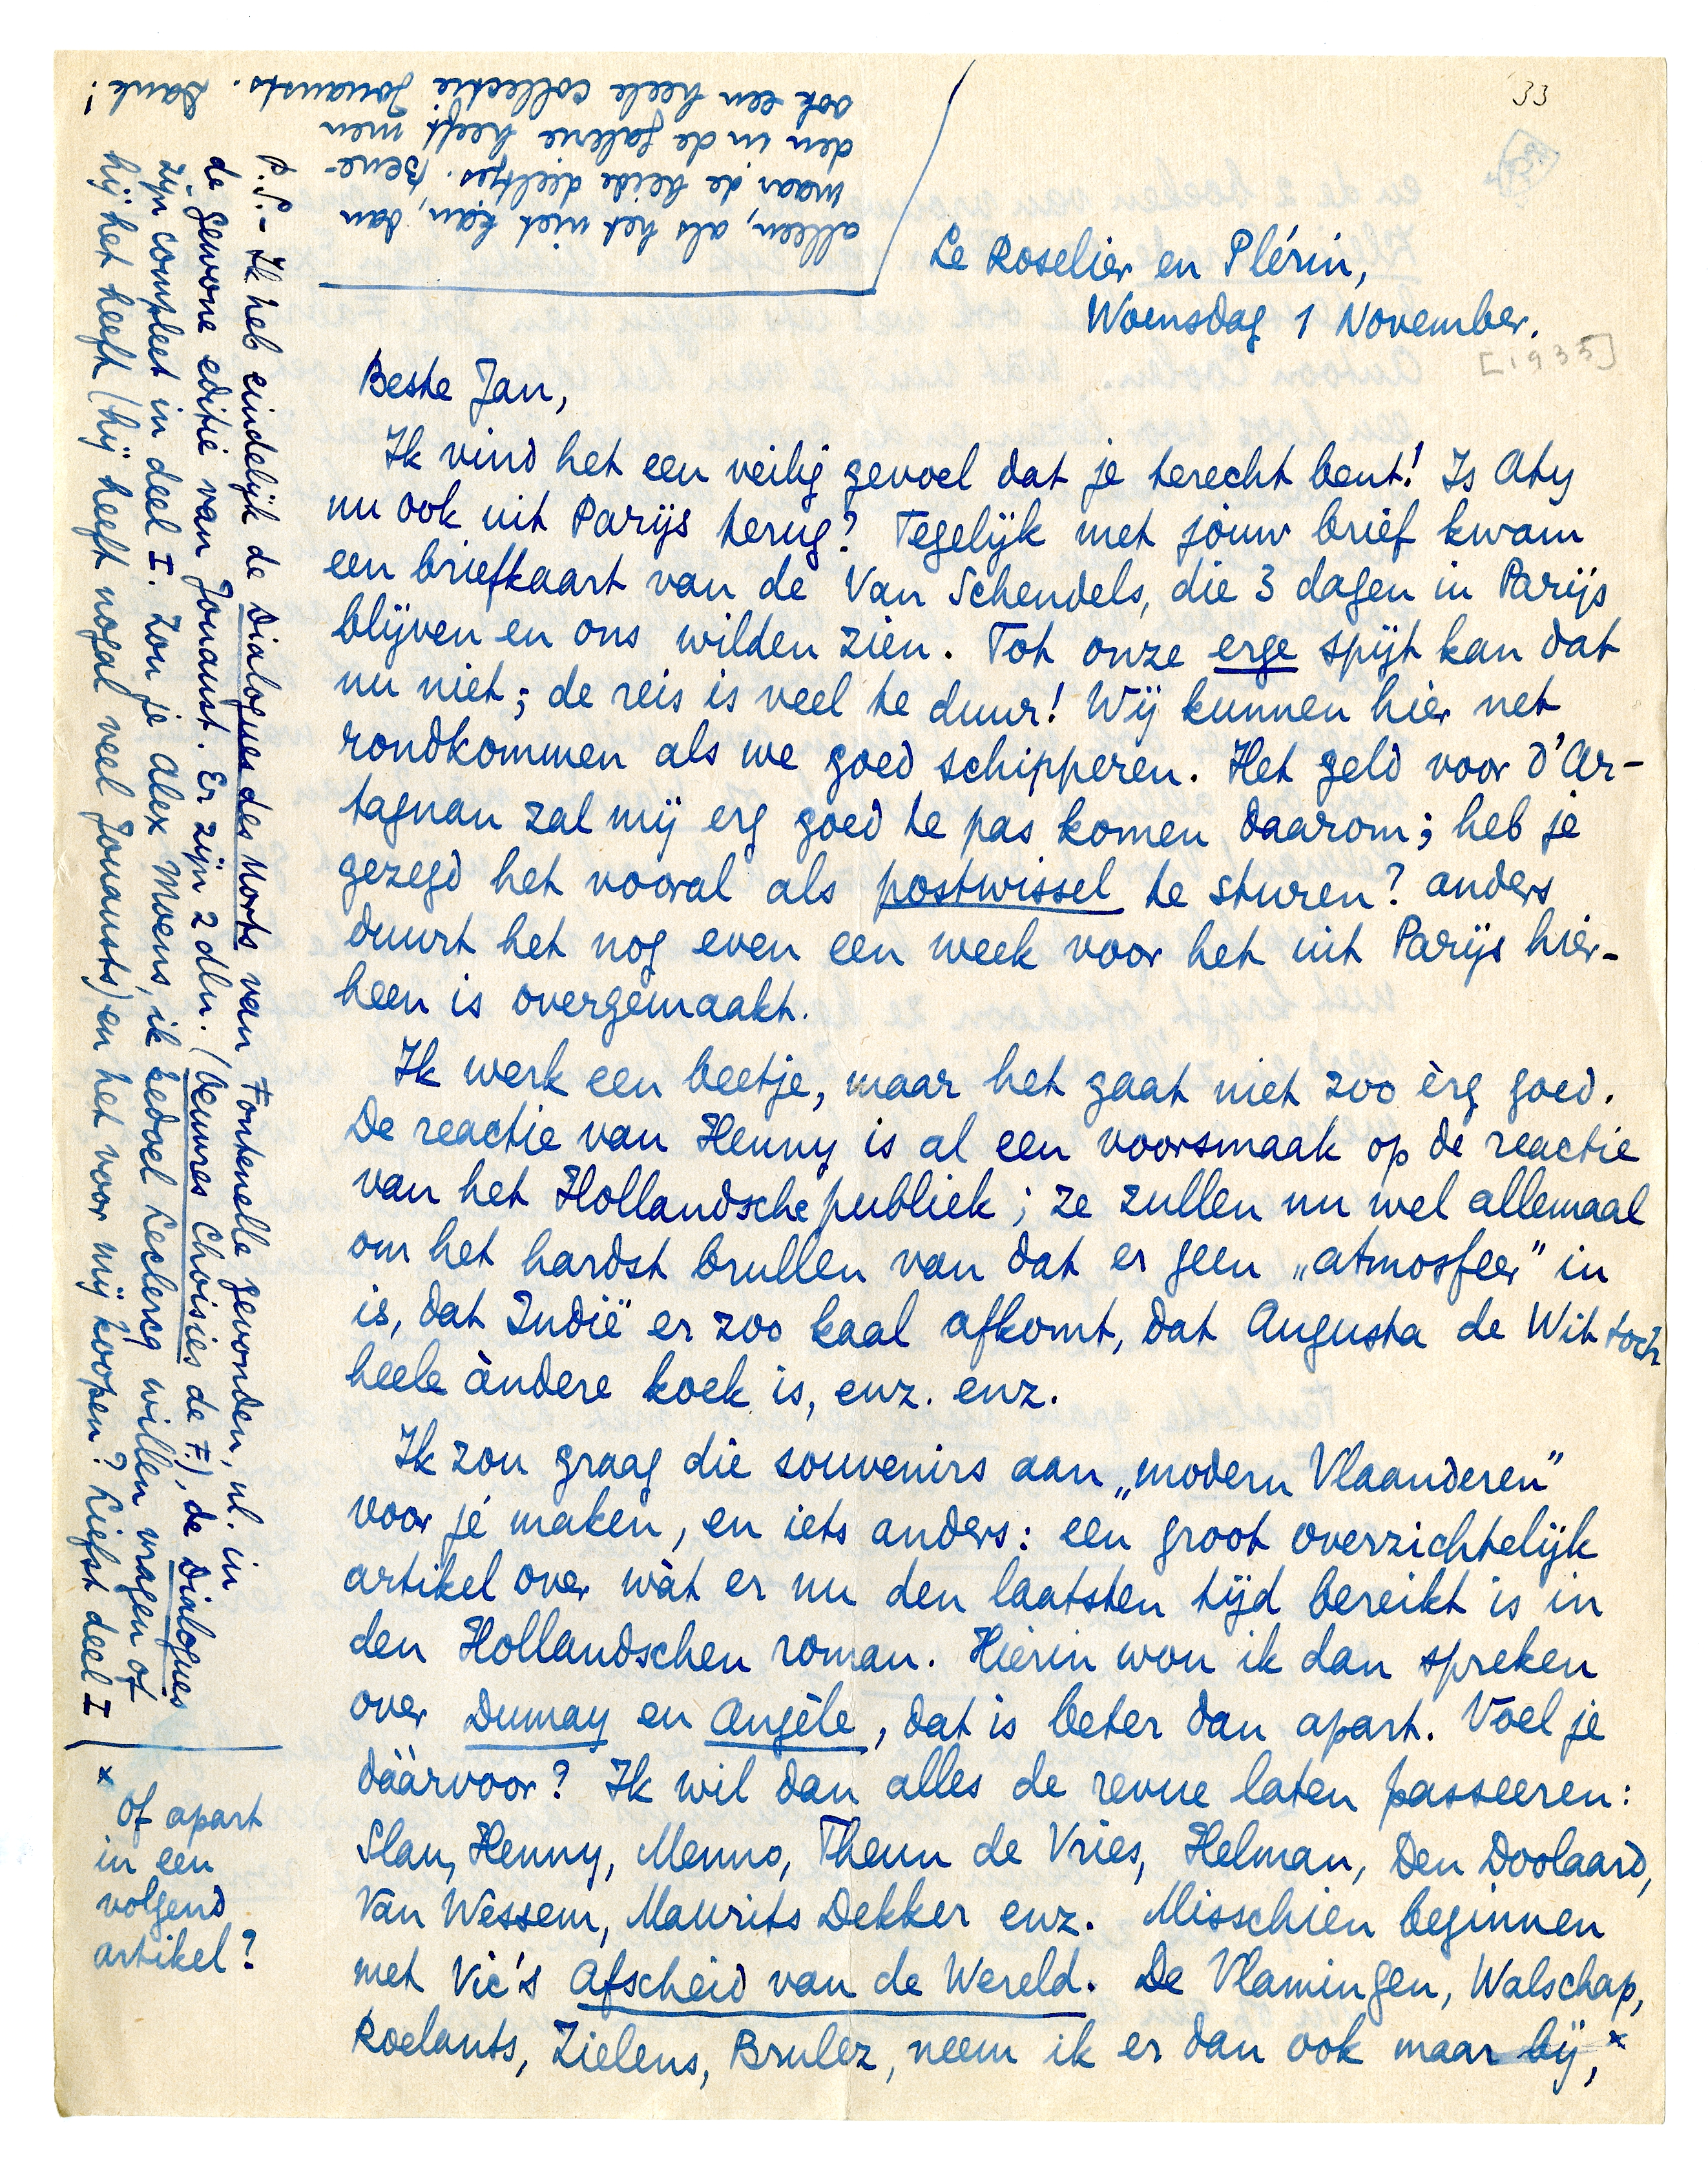 33
Le Roselier en Plérin,
Woensdag 1 November.
[1935]
Beste Jan,
Ik vind het een veilig gevoel dat je terecht bent! Is Aty
nu ook uit Parijs terug? Tegelijk met jouw brief kwam
een briefkaart van de Van Schendels, die 3 dagen in Parijs
blijven en ons wilden zien. Tot onze erge spijt kan dat
nu niet; de reis is veel te duur! Wij kunnen hier net
rondkommen als we goed schipperen. Het geld voor d'Ar-
tagnan zal mij erg goed te pas komen daarom; heb je
gezegd het vooral als postwissel te sturen? anders
duurt het nog even een week voor het uit Parijs hier-
heen is overgemaakt.
Ik werk een beetje, maar het gaat niet zoo èrg goed.
De reactie van Henny is al een voorsmaak op de reactie
van het Hollandsche publiek; ze zullen nu wel allemaal
om het hardst brullen van dat er geen „atmosfeer” in
is, dat Indië er zoo kaal afkomt, dat Augusta de Wit toch
heele àndere koek is, enz. enz.
Ik zou graag die souvenirs aan „modern Vlaanderen”
voor je maken, en iets anders: een groot overzichtelijk
artikel over wàt er nu den laatsten tijd bereikt is in
den Hollandschen roman. Hierin wou ik dan spreken
over Dumay en Angèle, dat is beter dan apart. Voel je
dáárvoor? Ik wil dan alles de revue laten passeeren:
Slau, Henny, Menno, Theun de Vries, Helman, Den Doolaard,
Van Wessem, Maurits Dekker enz. Misschien beginnen
met Vic's Afscheid van de Wereld. De Vlamingen, Walschap,
Roelants, Zielens, Brulez, neem ik er dan ook maar bij,×
× Of apart
in een
volgend
artikel?
P.S. - Ik heb eindelijk de Dialogues des Morts van Fontenelle gevonden, nl. in
de gewone editie van Jouaust. Er zijn 2 dln. (Oeuvres Choisies de F.), de Dialogues
zijn compleet in deel I. Zou je Alex Moens, ik bedoel Leclercq willen vragen of
hij het heeft (hij heeft nogal veel Jouausts) en het voor mij koopen? Liefst deel I
alleen, als het niet kan, dan
maar de beide deeltjes. Bene-
den in de galerie heeft men
ook een heele collectie Jouausts. Dank!